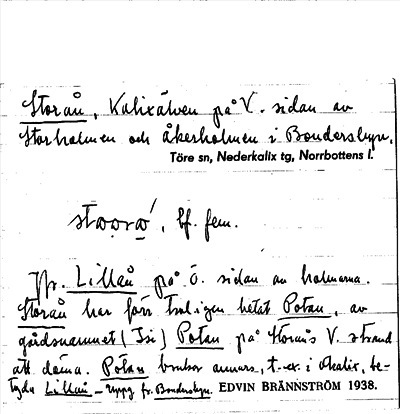 Storån, Kalixälven på V. sidan av
Storholmen och Åkerholmen i Bondersbyn.
Töre sn, Nederkalix tg, Norrbottens l.
bf. fem.
Jfr. Lillån på ö. sidan av holmarna.
Storån har förr troligen hetat Potan, av
gårdsnamnet (Isi) Potan på Storåns V. strand
att döma. Potan brukar annars, t.ex. i Ö.kalix, be-
tyda Lillån – Uppg. fr. Bondersbyn. EDVIN BRÄNNSTRÖM 1938.